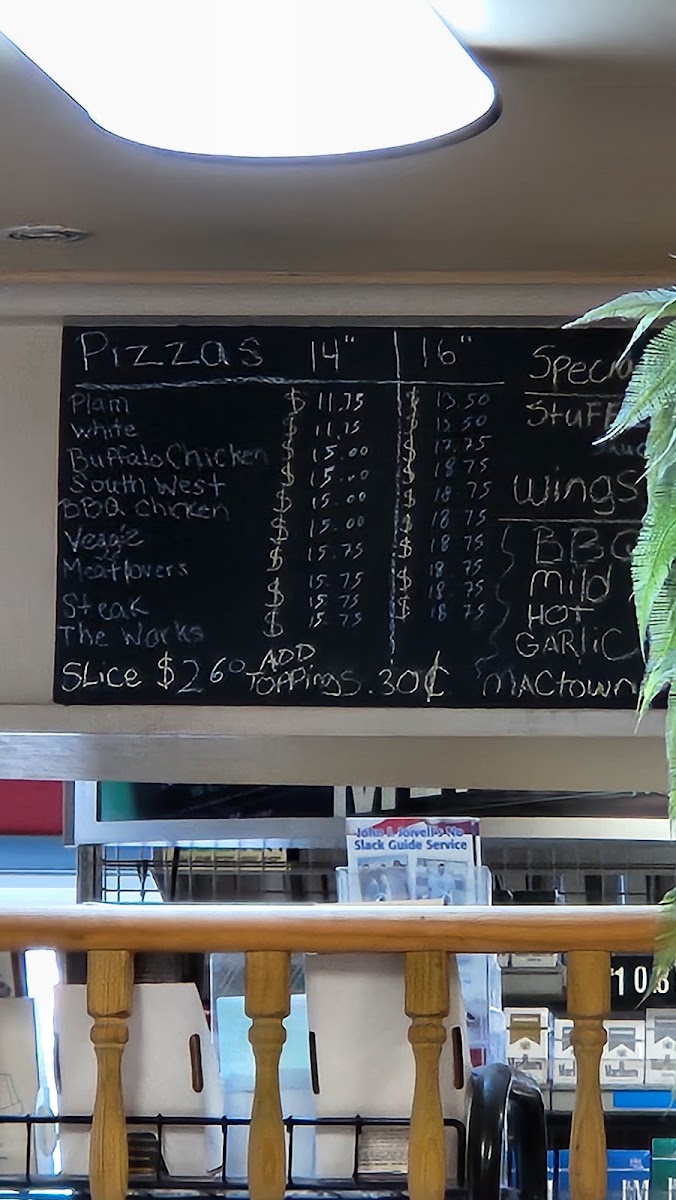 Pizzas 14" 16"
Plain $ 11.75 $ 13.50
White $ 11.75 $ 13.50
Buffalo Chicken $ 15.00 $ 17.75
South West $ 15.00 $ 18.75
BBQ Chicken $ 15.00 $ 18.75
Veggie $ 15.00 $ 18.75
Meatlovers $ 15.75 $ 18.75
Steak $ 15.75 $ 18.75
The Works $ 15.75 $ 18.75
SLice $2.60 ADD TOPPINGS .30¢
Wings
BBQ
Mild
HOT
GARLIC
MACTOWN
Slack Guide Service